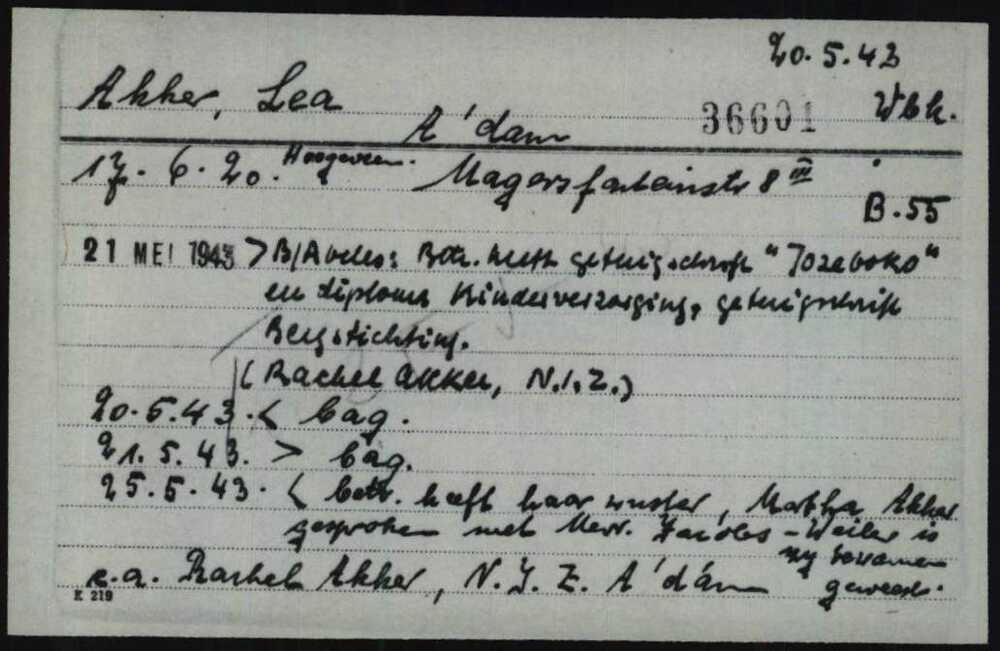 20.5.43
Akker, Lea
A'dam 36601 Wbk.
17.6.20. Hoogeveen. Magersfonteinstr 8 III
B.55
21 MEI 1943 > B/Avdlo: Betr. heeft getuigschrift "Jozeboko"
en diploma Kinderverzorging, getuigschrift
Bergstichting.
(Rachel Akker, N.I.Z.)
20.5.43. < bag.
21.5.43. > bag.
25.5.43. < betr. heeft haar zuster, Martha Akker
gesproken met Mevr. Jacobs - Weiler is
zy tesamen
e.a. Rachel Akker, N.I.Z. A'dam geweest.
K 219